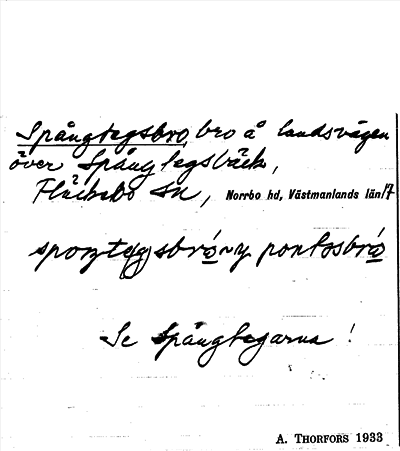 Spångtegsbro, bro å landsvägen
över Spångtegsbäck,
Fläckebo Sn, Norrbo hd, Västmanlands län 17
Se Spångtegarna!
A. THORFORS 1933